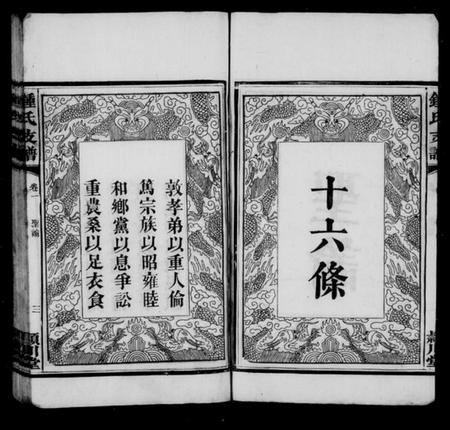 十六條
鍾氏支譜
潁川堂
敦孝弟以重人倫
篤宗族以昭雍睦
和鄉黨以息爭訟
重農桑以足衣食
鍾氏支譜
卷一
聖諭
三
潁川堂